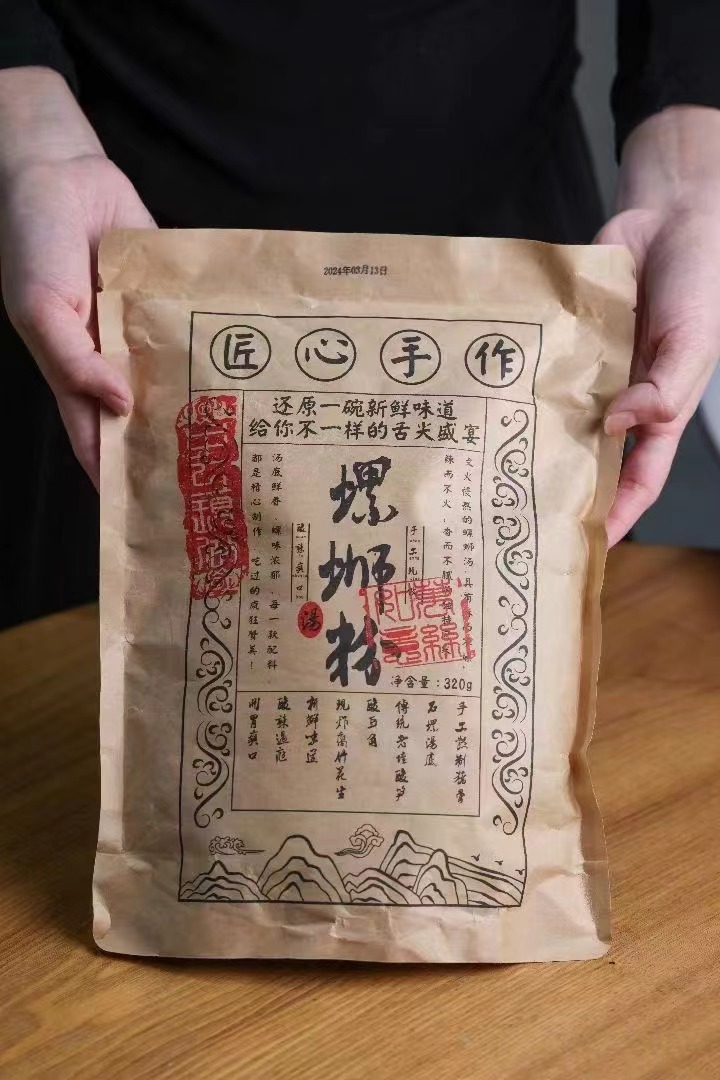 2024年03月13日
匠心手作
还原一碗新鲜味道
给你不一样的舌尖盛宴
文火慢熬的螺蛳汤
辣而不火
螺蛳粉
汤
酸辣爽口
汤底鲜香
螺味浓郁
每一款配料
都是精心制作
吃过的疯狂赞美！
净含量：320g
石螺汤底
傳統老坛酸笋
酸豆角
现炸腐竹花生
新鲜味道
酸辣过瘾
开胃爽口